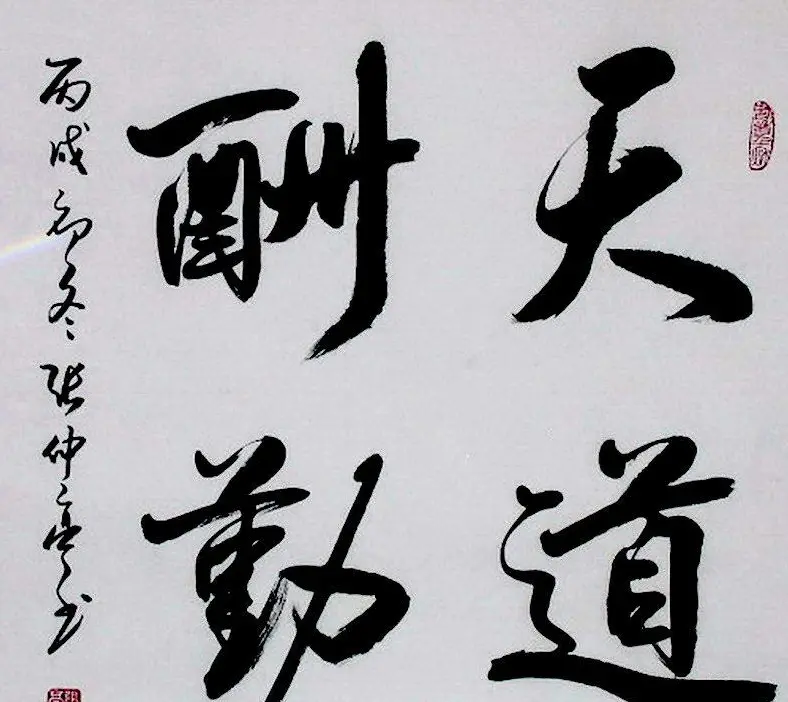 天道
酬勤
丙戌初冬张仲亭书